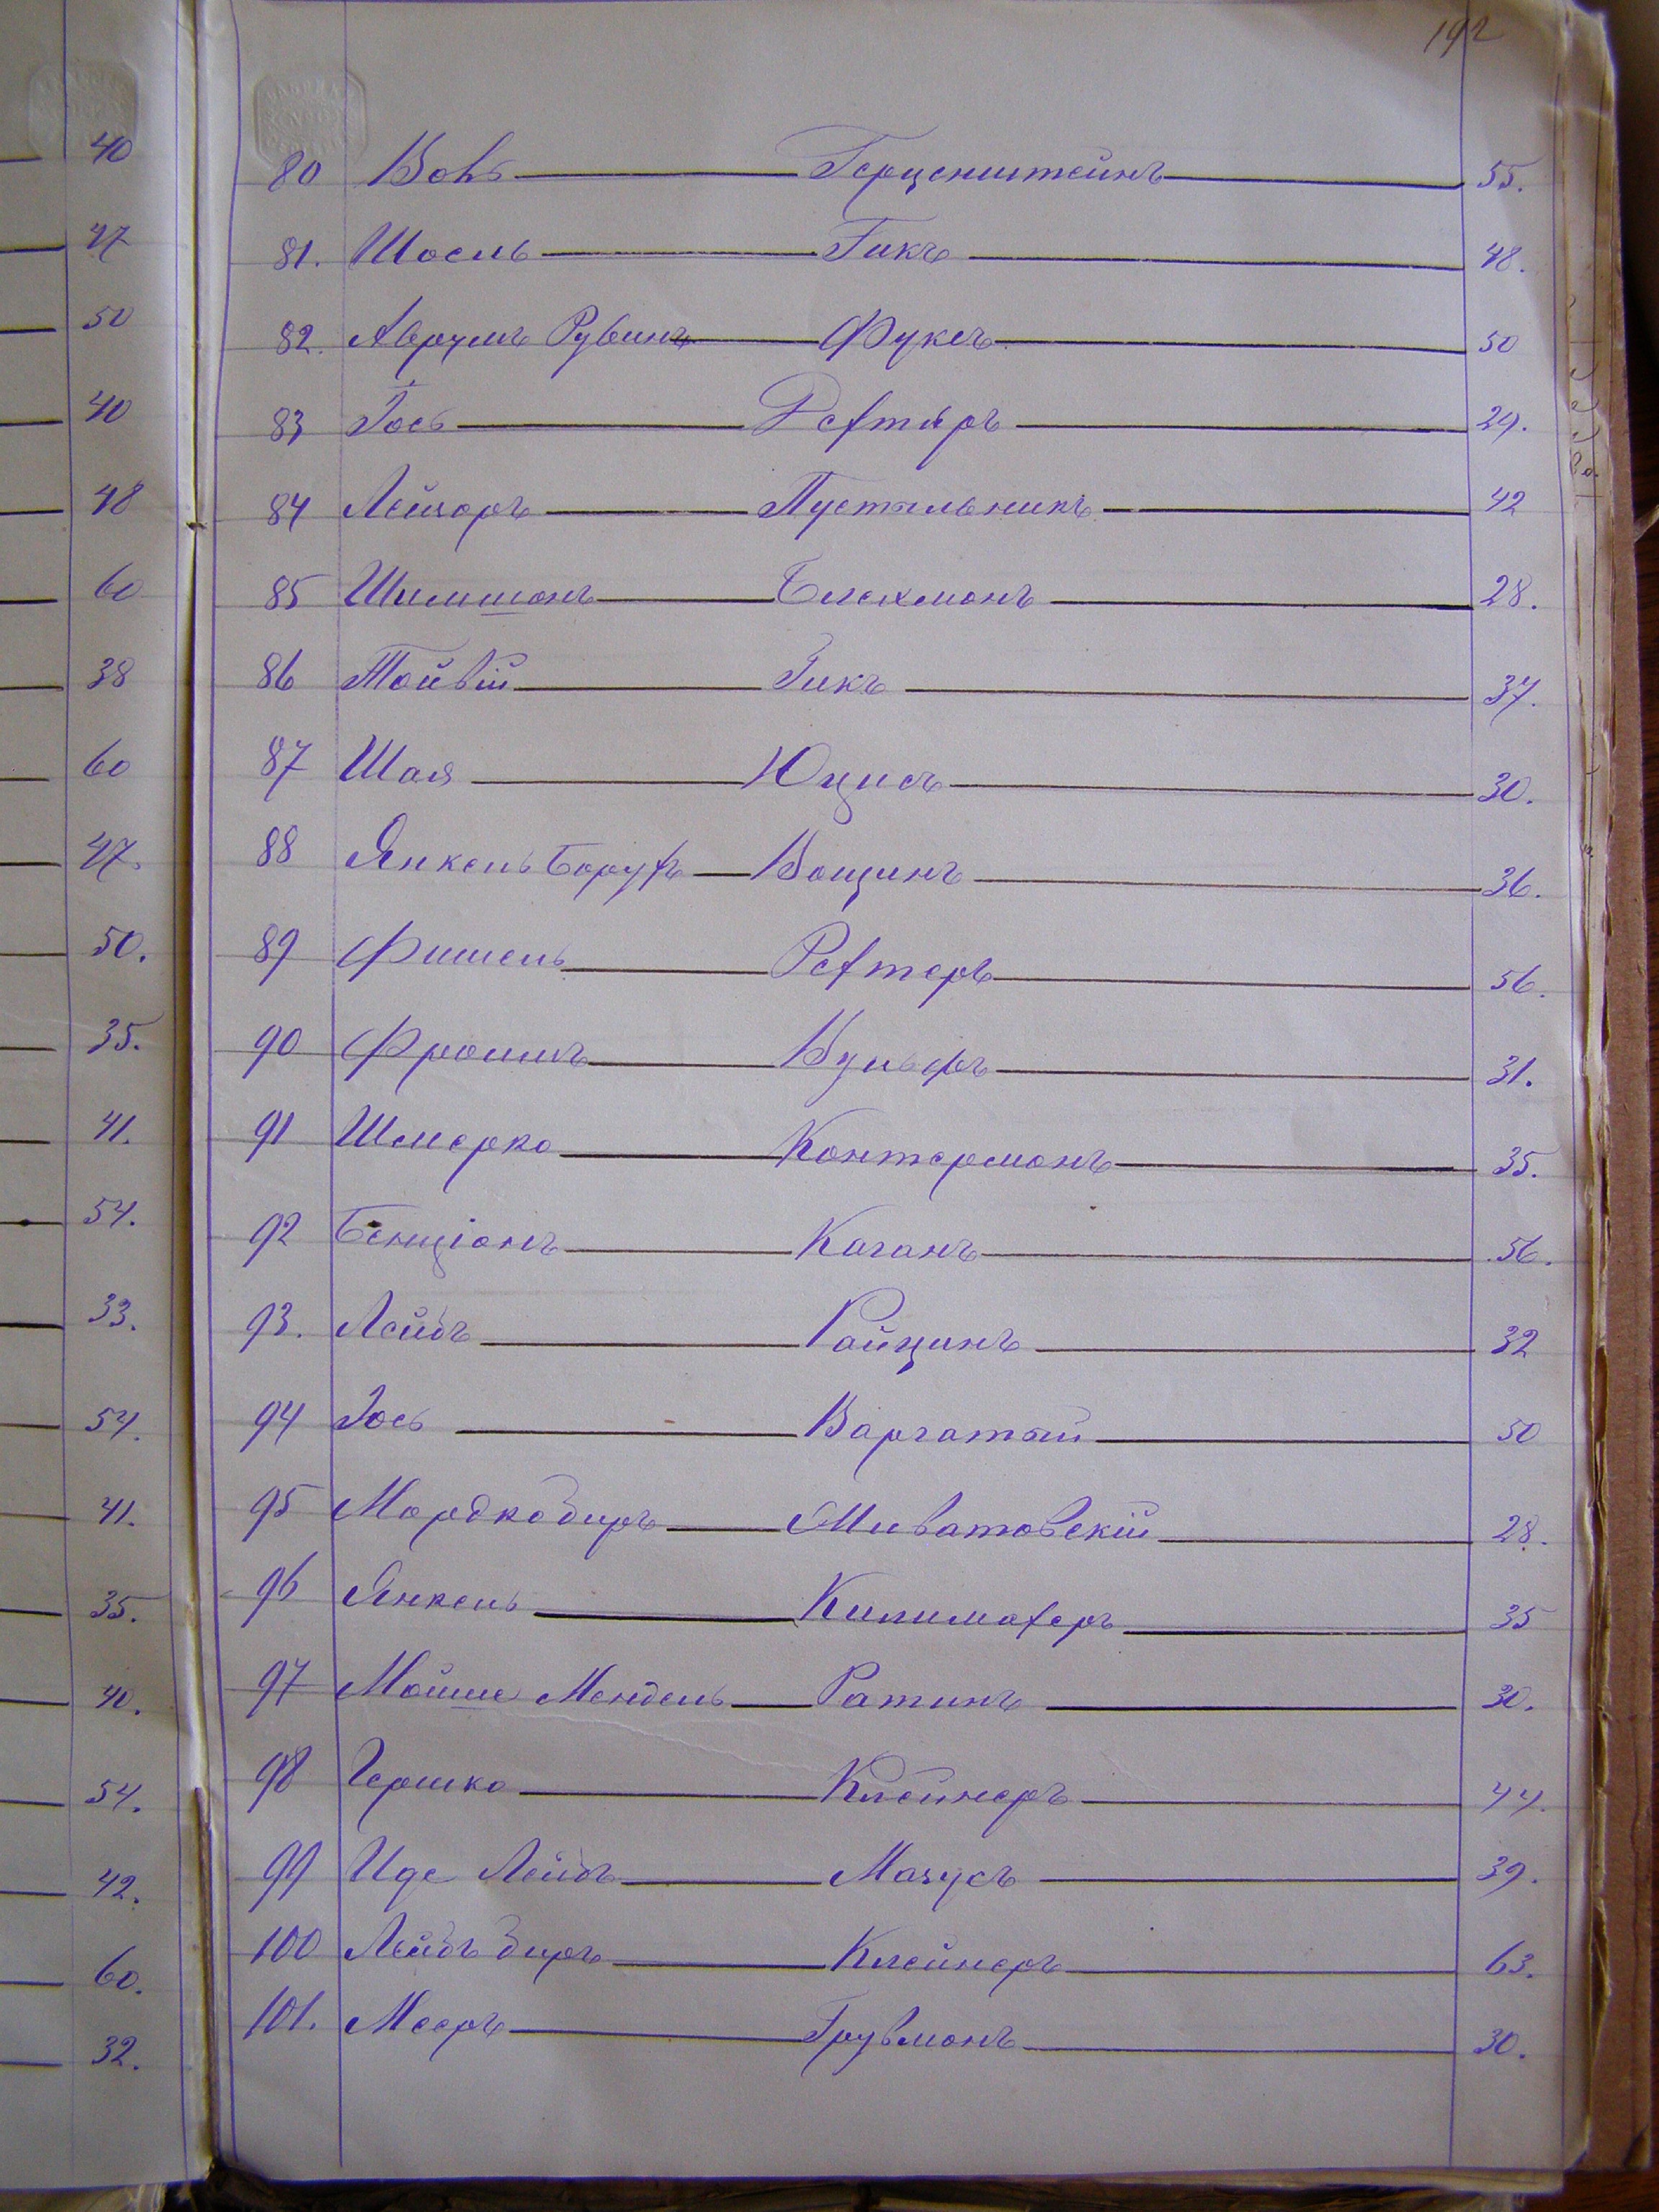 192
40
47
50
40
48
60
38
60
47.
50.
35.
41.
54.
33.
54.
41.
35.
40.
54.
42.
60.
32.
80 Вовъ Герценштейнъ 55.
81. Шоель Гикъ 48.
82. Аврумъ Рувинъ Фуксъ 50
83 Іось Рехтеръ 29.
84 Лейзоръ Пустыльникъ 42
85 Шимшонъ Блехманъ 28.
86 Тойвій Гикъ 37.
87 Шая Юцисъ 30.
88 Янкель Борухъ Вощинъ 36.
89 Фишель Рехтеръ 56.
90 Фроимъ Вульфъ 31.
91 Шмерко Контерманъ 35.
92 Бенціонъ Каганъ 56.
93. Лейбъ Райцинъ 32
94 Іось Варгатый 50
95 Мордко Биръ Миватовскій 28.
96 Янкель Килимахеръ 35
97 Мойше Мендель Ратинъ 30.
98 Гершко Клейнеръ 44.
99 Иде Лейбъ Мазусъ 39.
100 Лейбъ Биръ Клейнеръ 63.
101. Мееръ Грувманъ 30.